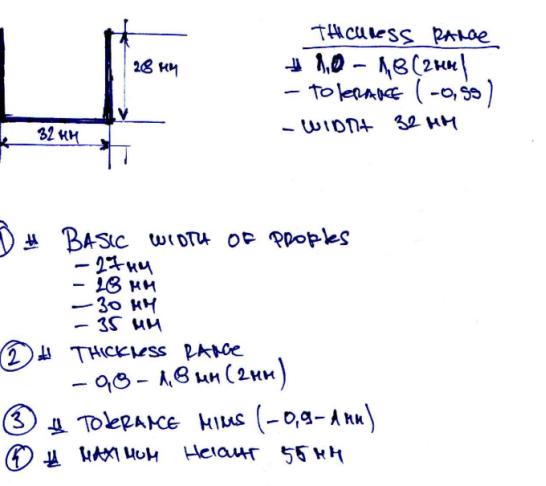 THICKNESS RANGE
1,0 - 1,8 (2MM)
- TOLERANCE (-0,99)
- WIDTH 32 MM
28 MM
32 MM
1 # BASIC WIDTH OF PROFILES
- 27 MM
- 28 MM
- 30 MM
- 35 MM
2 # THICKNESS RANGE
- 0,8 - 1,8 MM (2MM)
3 # TOLERANCE MINS (-0,9 - 1MM)
4 # MAXIMUM HEIGHT 55 MM